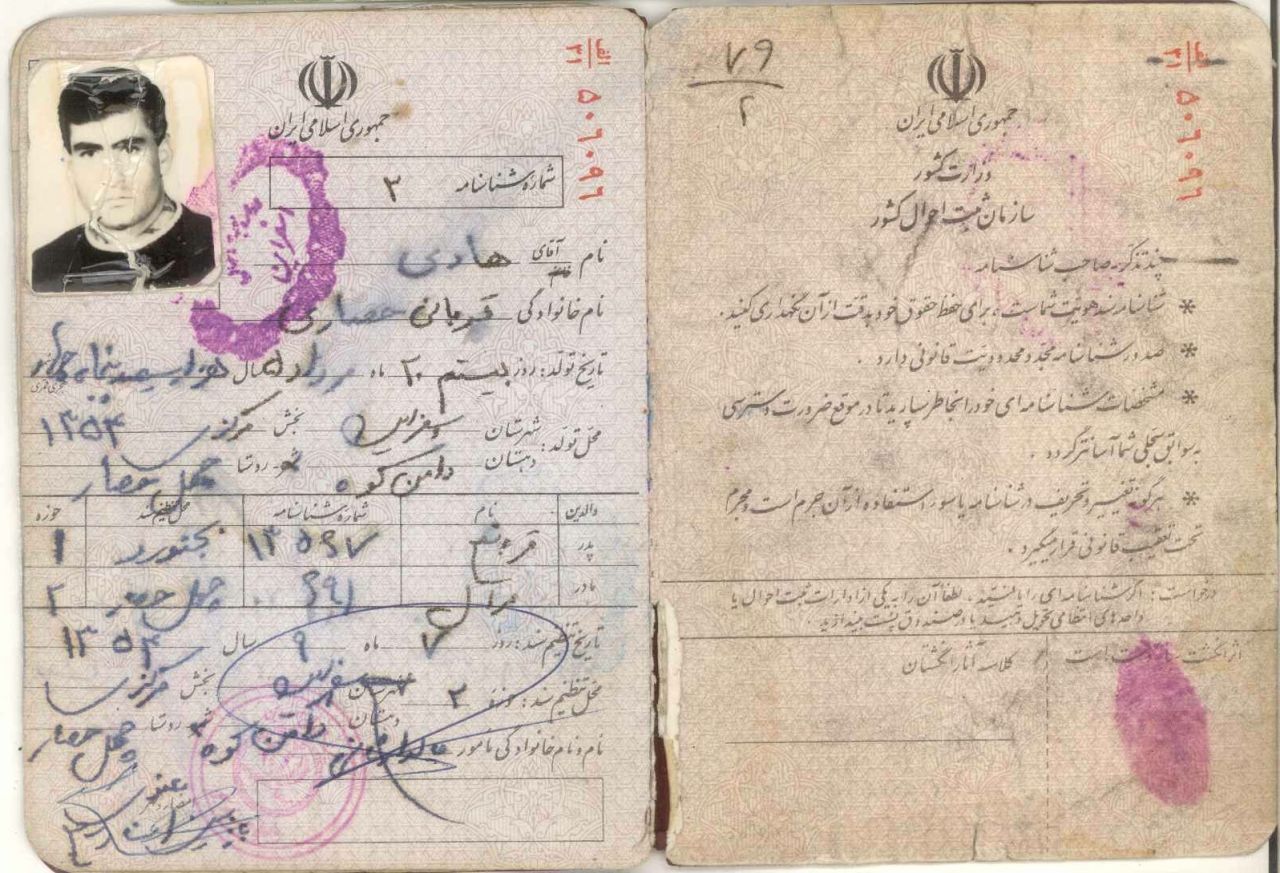 ۷۹
۲
جمهوری اسلامی ایران
وزارت کشور
سازمان ثبت احوال کشور
الف
۳۱
۵۰۶۰۹۶
چند تذکر به صاحب شناسنامه
* شناسنامه سند هویت شماست، برای حفظ حقوق خود بدقت از آن نگهداری کنید.
* صدور شناسنامه مجدد محدودیت قانونی دارد.
* مشخصات شناسنامه ای خود را بخاطر بسپارید تا در موقع ضرورت دسترسی
به سوابق سجلی شما آسانتر گردد.
* هرگونه تغییر و تحریف در شناسنامه یا سوء استفاده از آن جرم است و مجرم
تحت تعقیب قانونی قرار میگیرد.
درخواست: اگر شناسنامه ای را یافتید، لطفا آن را به یکی از ادارات ثبت احوال یا
واحدهای انتظامی تحویل دهید یا در صندوق پست بیندازید.
اثر انگشت سبابه دست راست
کلاسه آثار انگشتان
الف
۳۱
۵۰۶۰۹۶
جمهوری اسلامی ایران
شماره شناسنامه ۳
نام آقای هادی
نام خانوادگی قربانی حصاری
تاریخ تولد: روز بیستم ۲۰ ماه مرداد ۵ سال
هجری شمسی
محل تولد: شهرستان اسفراین بخش مرکزی ۱۳۵۴
دهستان دامن کوه روستا چهل حصار
والدین نام شماره شناسنامه محل تنظیم سند حوزه
پدر ۱۳۵۹۷ بجنورد ۱
مادر مارال ۶۹۱ چهل حصار ۲
تاریخ تنظیم سند: روز ۷ ماه ۹ سال ۱۳۵۴
محل تنظیم سند: حوزه ۲ شهرستان اسفراین بخش مرکزی
دهستان دامن کوه روستا چهل حصار
نام و نام خانوادگی مامور